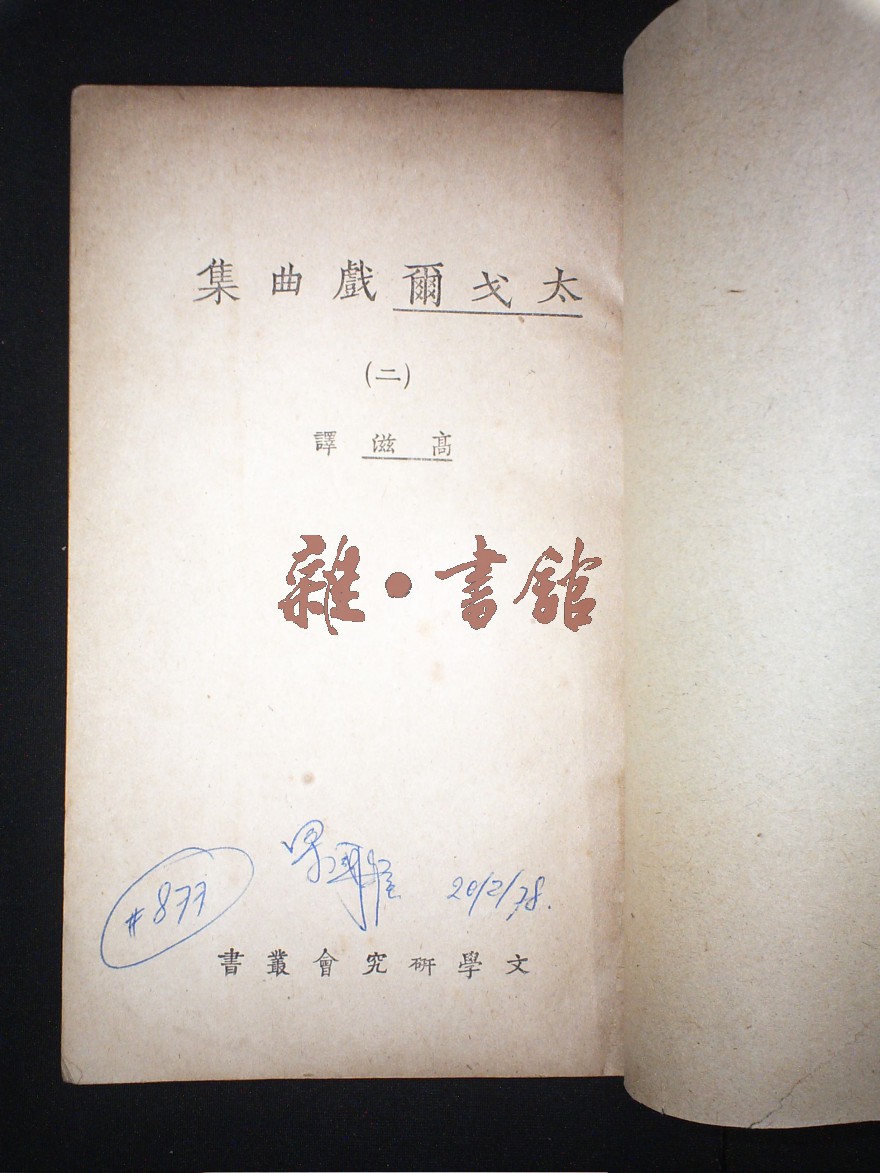 太戈爾戲曲集
(二)
高滋譯
雜•書館
#877
20/2/78.
文學研究會叢書